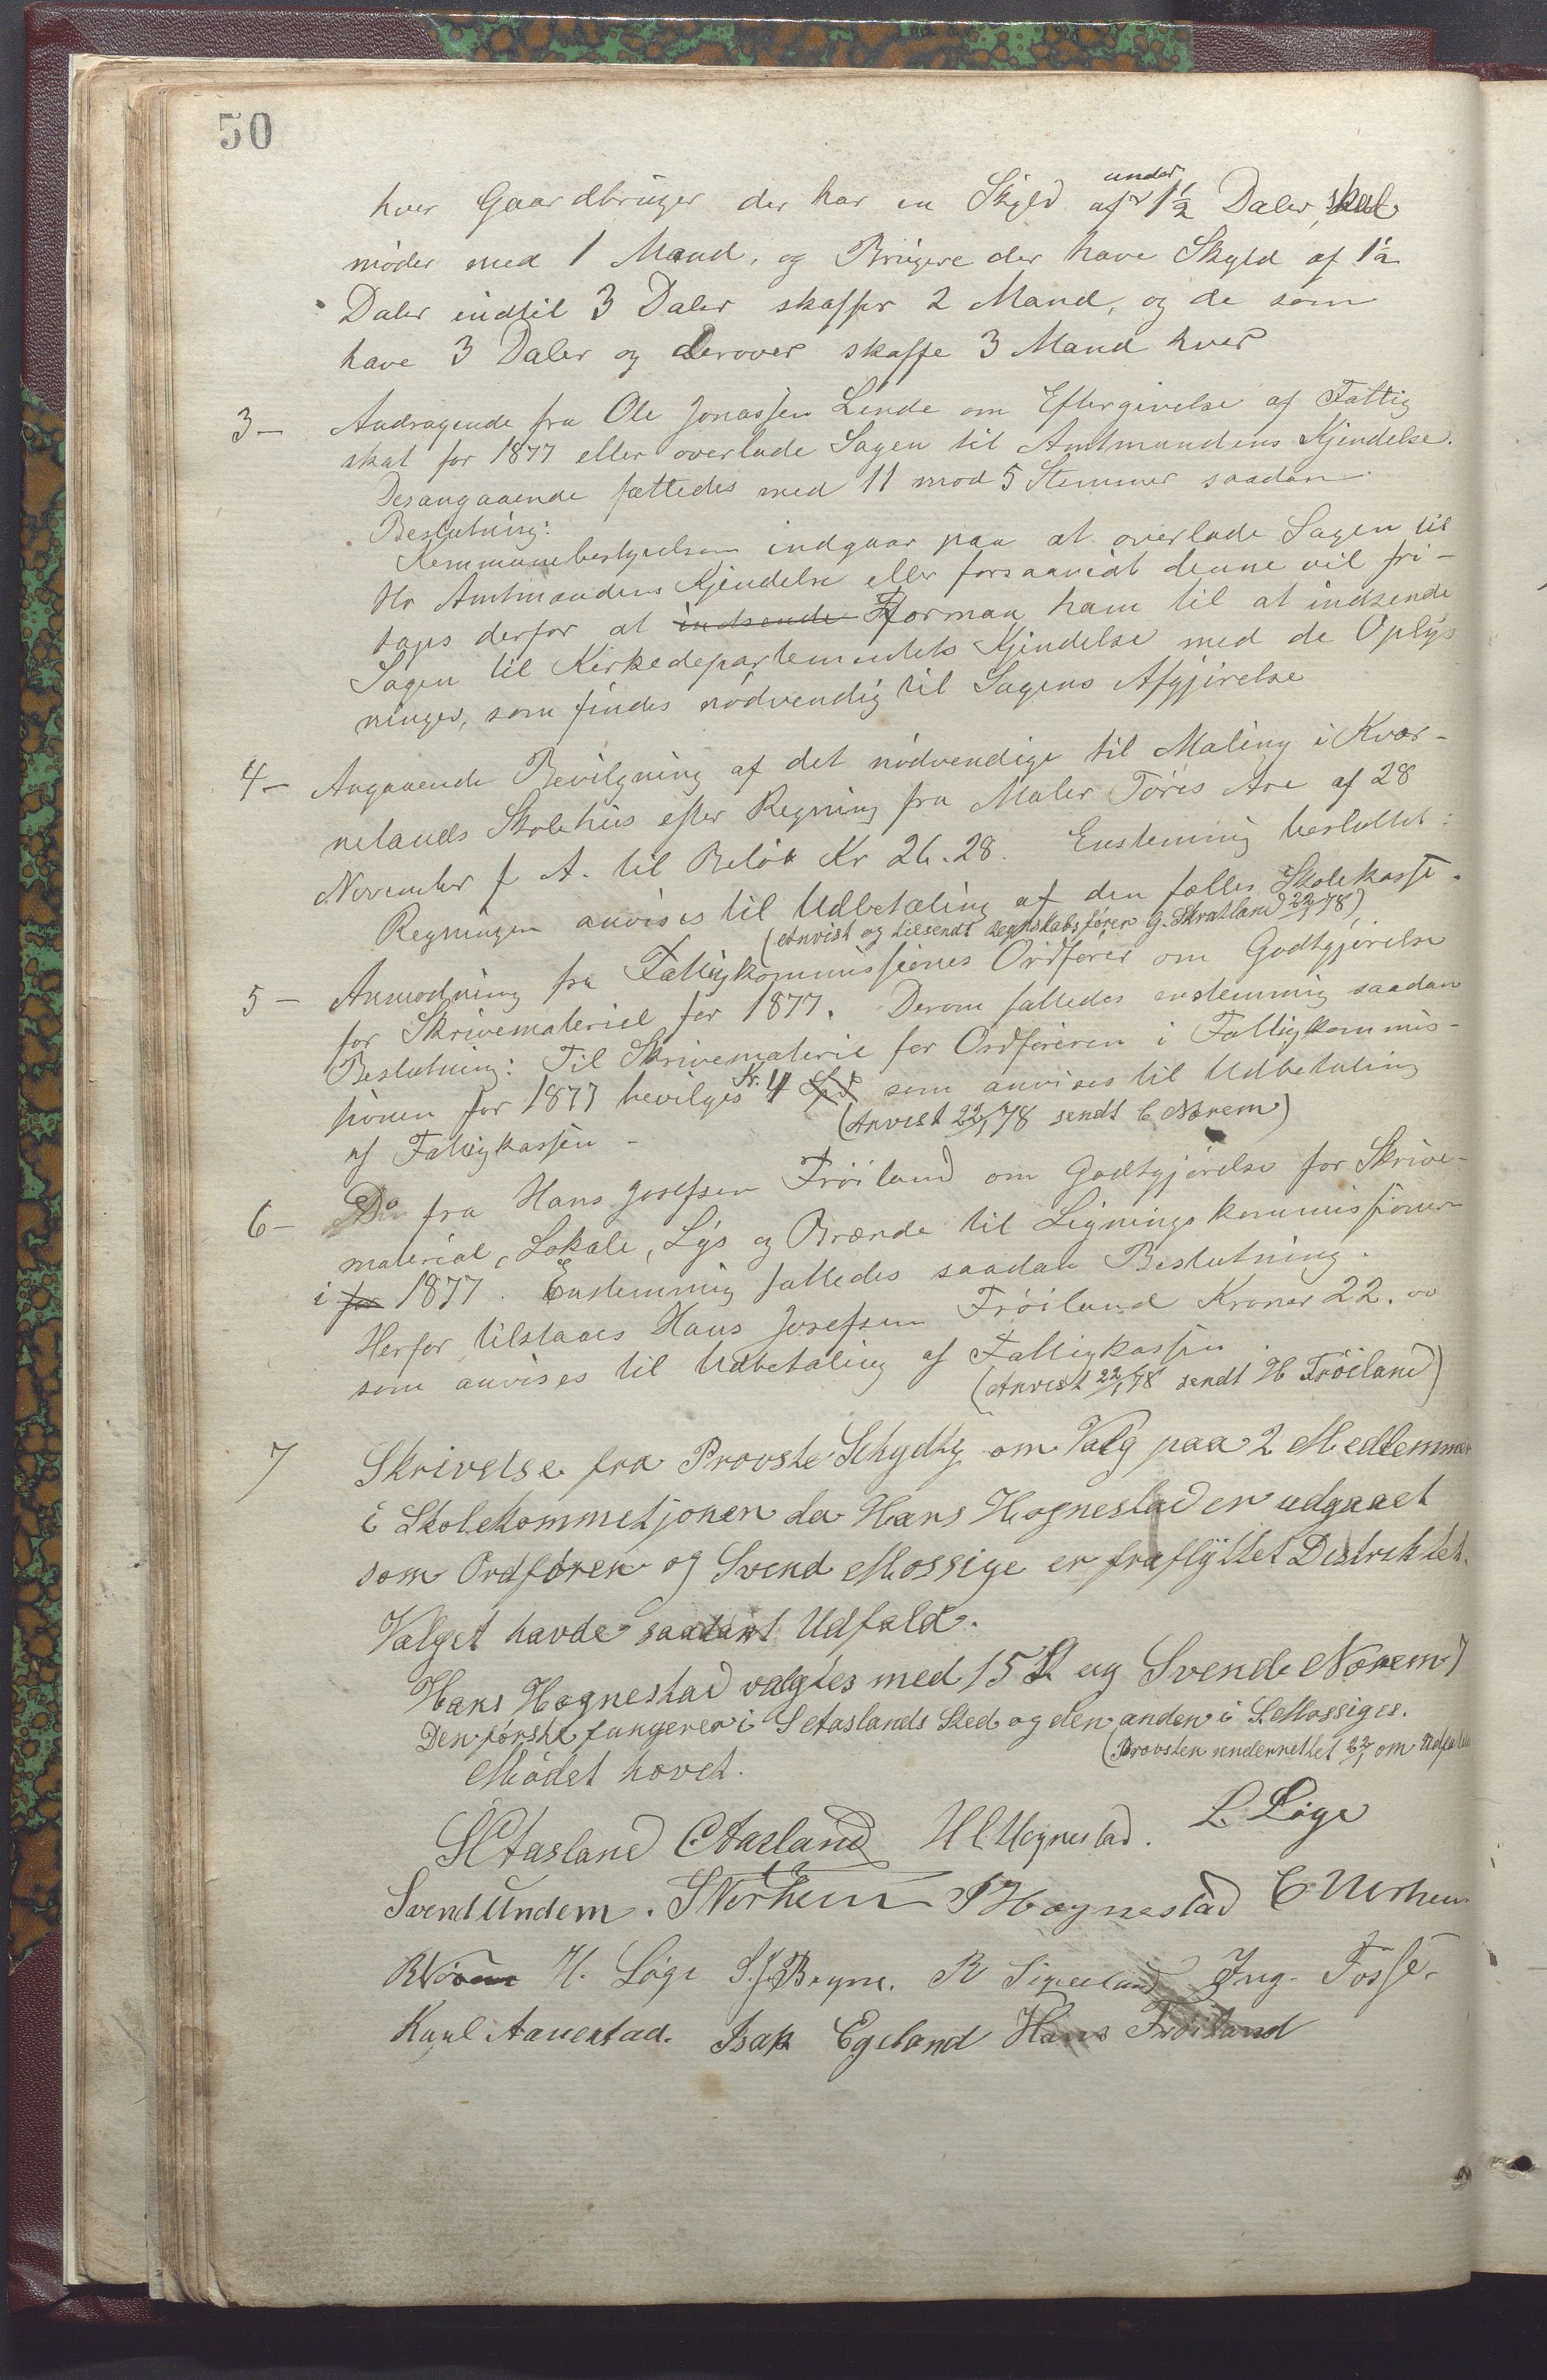 50
hver Gaardbruger der har en Skyld af under 1½ Daler, skal
møder med 1 Mand, og Brugere der have Skyld af 1½
Daler indtil 3 Daler skaffer 2 Mand, og de som
have 3 Daler og derover skaffe 3 Mand hver
3 — Andragende fra Ole Jonassen Lende om Eftergivelse af Fattig
skat for 1877 eller overlade Sagen til Amtmandens Kjendelse.
Desangaaende fattedes med 11 mod 5 Stemmer saadan
Beslutning:
Kommunebestyrelsen indgaar paa at overlade Sagen til
Hr Amtmandens Kjendelse eller forsaavidt denne vil fri-
tages derfor at indsende Formaa ham til at indsende
Sagen til Kirkedepartementets Kjendelse med de Oplys
ninger, som findes nødvendig til Sagens Afgjørelse
4 — Angaaende Bevilgning af det nødvendige til Maling i Kver-
nelands Skolehus efter Regning fra Maler Tøres Are af 28
November f A. til Beløb Kr 26.28. Enstemmig besluttet:
Regningen anvises til Udbetaling af den fælles Skolekasse.
(Anvist og tilsendt Regnskabsfører G. Skratland 22/1 78)
5 — Anmodning fra Fattigkommissionens Ordfører om Godtgjørelse
for Skrivemateriel for 1877. Derom fattedes enstemmig saadan
Beslutning: Til Skrivematerie for Ordføreren i Fattigkommis-
sionen for 1877 bevilges Kr. 4 Spd som anvises til Udbetaling
af Fattigkassen - (Anvist 22/1 78 sendt C Norem)
6 — Do fra Hans Josefsen Frøiland om Godtgjørelse for Skrive-
material, Lokale, Lys og Brænde til Ligningskommissionen
i for 1877. Enstemmig fattedes saadan Beslutning.
Herfor tilstaaes Hans Josefsen Frøiland Kroner 22.00
som anvises til Udbetaling af Fattigkassen.
(Anvist 22/1 78 sendt H Frøiland)
7 Skrivelse fra Provste Schydtz om Valg paa 2 Medlemmer
i Skolekommetjonen da Hans Hognestad er udgaaet
som Ordfører og Svend Mossige er fraflyttet Distriktet.
Valget havde saadant Udfald.
Hans Hognestad valgtes med 15 St og Svend Norem 7
Den første fungerer i S Aaslands Sted og den anden i S. Mossiges.
(Provsten underrettet 22/1 om Udfaldet
Mødet hævet.
S C Aasland C. Aasland H L Hognestad. L. Løge
Svend Undem. S Norheim S Hognestad C Nerheim
R Norem H. Løge S. J. Bryne. R Sigveland Ing. Fosse.
Karl Aanestad. Isak Egeland Hans Frøiland